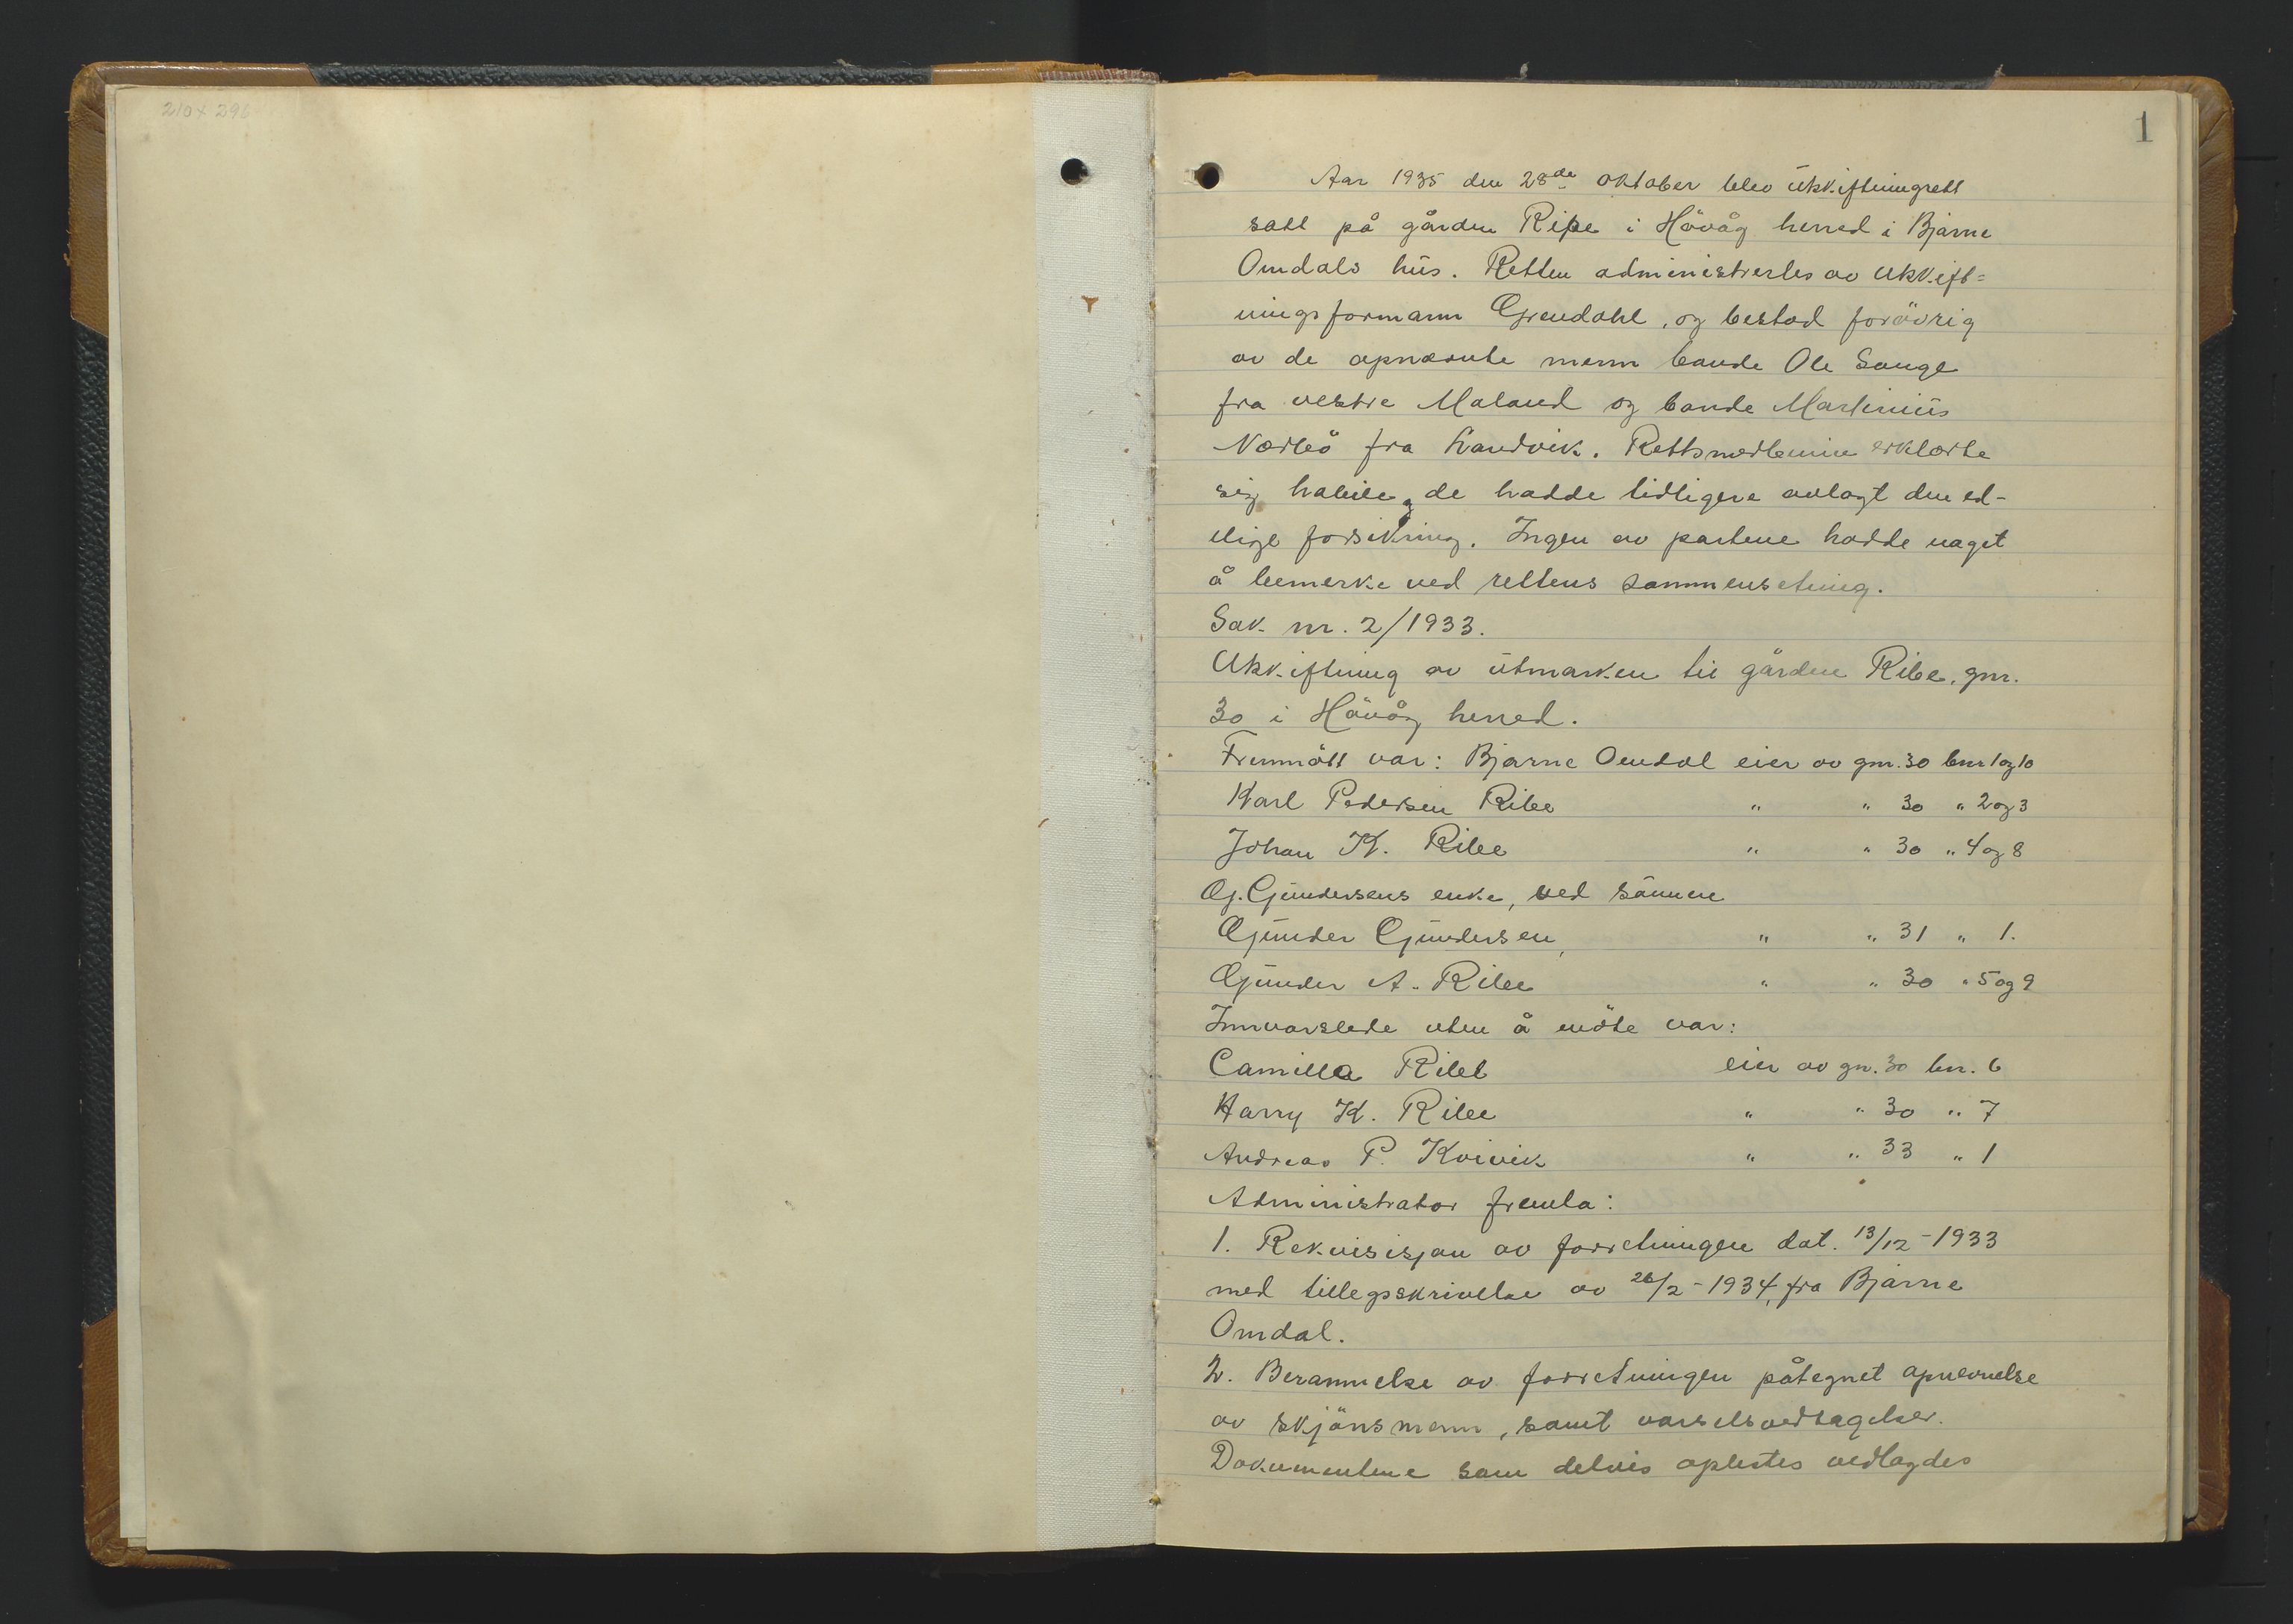 210 x 296
1
Aar 1935 den 28de oktober blev utskiftningrett
satt på gården Ribe i Hövåg herred i Bjarne
Omdals hus. Retten administrertes av utskift=
ningsformann Grendahl, og bestod forövrig
av de opnevnte menn bonde Ole Sangl
fra vestre Maland og bonde Martinius
Nærbö fra Landvik. Rettsmedlemme erklærte
sig habile og de hadde tidligere avlagt den ed-
elige forsikring. Ingen av partene hadde noget
å bemerke ved rettens sammensetning.
Sak nr. 2/1933.
Utskiftning av utmarken til gården Ribe, gnr.
30 i Hövåg herred.
Fremmött var: Bjarne Omdal eier av gnr. 30 bnr 1 og 10
Karl Pedersen Ribe " " 30 " 2 og 3
Johan K. Ribe " " 30 " 4 og 8
G. Gundersens enke, ved sönnen
Gunder Gundersen, " " 31 " 1.
Gunder A. Ribe " " 30 " 5 og 9
Innvarslede uten å möte var:
Camilla Ribe eier av gnr. 30 bnr. 6
Harry K. Ribe " " 30 " 7
Andreas P. Kvivik " " 33 " 1
Administrator fremla:
1. Rekvisisjon av forretningen dat. 13/12-1933
med tilleggsskrivelse av 26/2-1934, fra Bjarne
Omdal.
2. Berammelse av forretningen påtegnet opnevnelse
av skjönsmenn, samt varselsvedtagelser.
Dokumentene som delvis oplestes vedlagdes